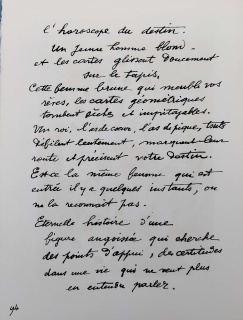 l'horoscope du destin.
Un jeune homme blond -
et les cartes glissent doucement
sur le tapis,
Cette femme brune qui meuble vos
rêves, les cartes géométriques
tombent sèches et impitoyables.
Un roi, l'as de cœur, l'as de pique, touts
défilent lentement, marquant leur
route et précisent votre destin.
Est-ce la même femme qui est
entrée il y a quelques instants, on
ne la reconnaît pas.
Eternelle histoire d'une
figure angoissée qui cherche
des points d'appui, des certitudes
dans une vie qui ne veut plus
en entendre parler.
94